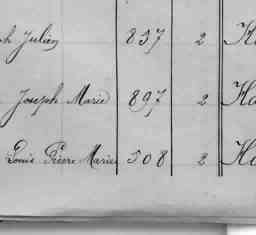 ph Julien 837 2
Joseph Marie 897 2
Louis Pierre Marie 508 2